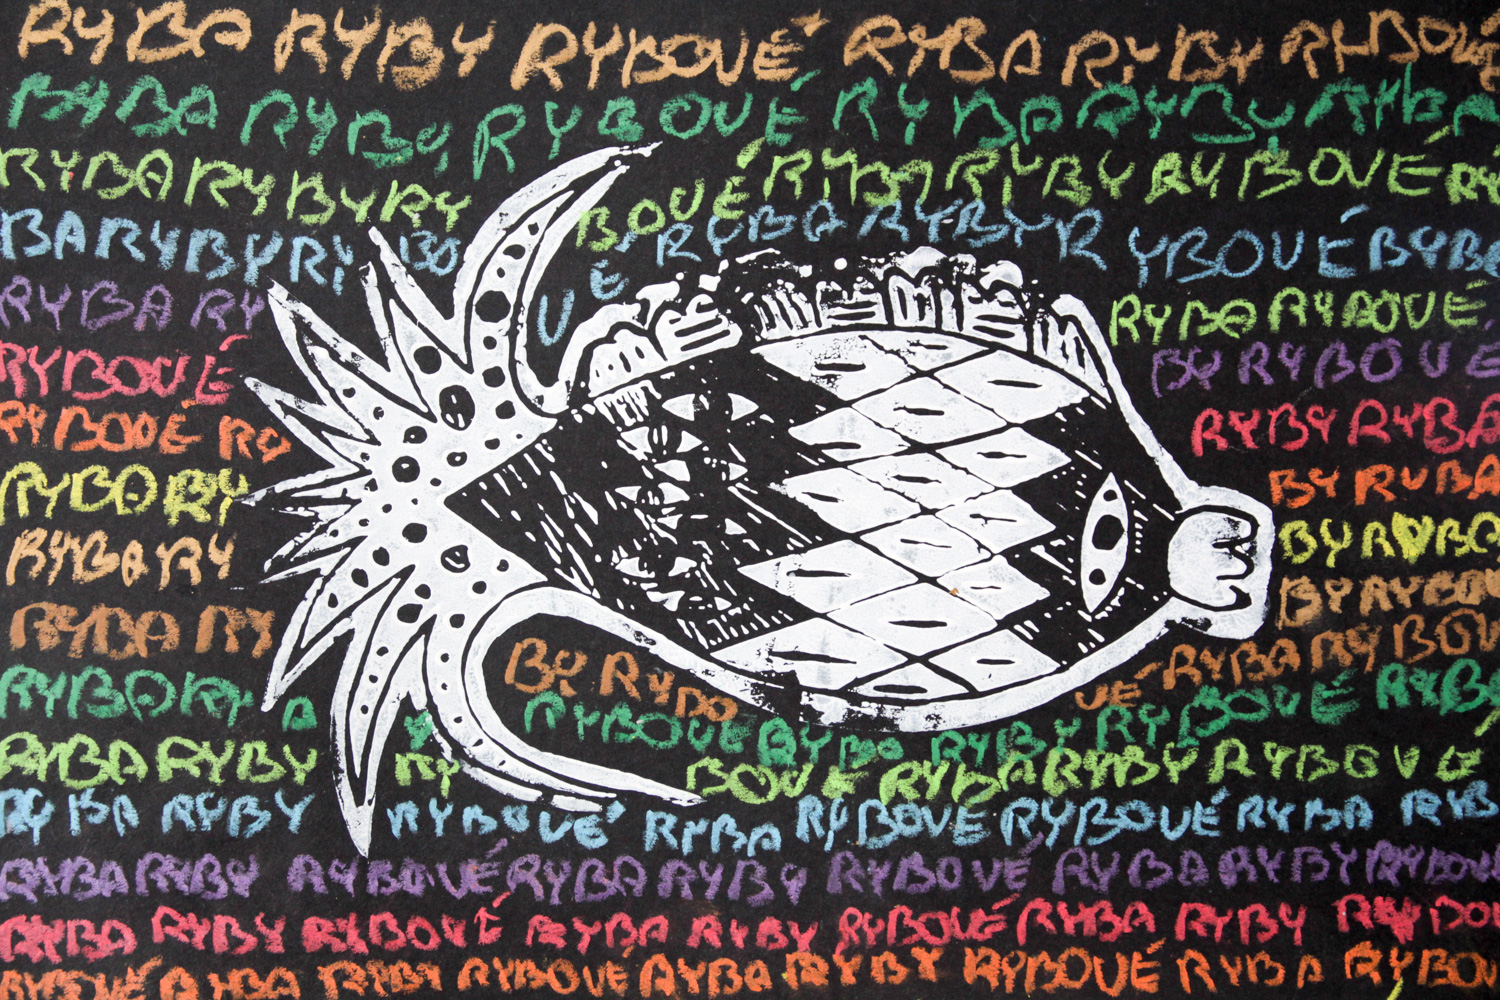 RYBA RYBY RYBOUÉ RYBA RYBY RYBOU
RYBA RYBY, RYBOUÉ RYBA RYBY RYBA
RYBA RYBY RY BOUÉ RYBA RYBY RYBOUÉ RY
BA RYBY RY BO U E RYBA RYBY R YBOUÉ BYBO
RYBA RY RYBA RYBOUÉ
RYBOUÉ BY RYBOUÉ
RYBOUÉ RY RYBY RYBA
RYBA RY BY RYBA
RYBA RY BY RYBA
RYBA RY BY RYBOU
RYBA RY BY RYBO UÉ RYBA RYBOU
RYBA RY A RYBOUE RYBA RYBY RYBOUÉ RYB
RYBA RYBY RY BOUE RYBA RYBY RYBOUÉ
RYBA RYBY RYBOUÉ RYBA RYBOUE RYBOUÉ RYBA RYB
RYBA RYBY RYBOUÉ RYBA RYBY RYBOUÉ RYBA RYBY RYBOU
RYBA RYBY RYBOUÉ RYBA RYBY RYBOUÉ RYBA RYBY RYBOU
RYBOUÉ RYBA RYBY RYBOUÉ RYBA RYBY RYBOUÉ RYBA RYBOU